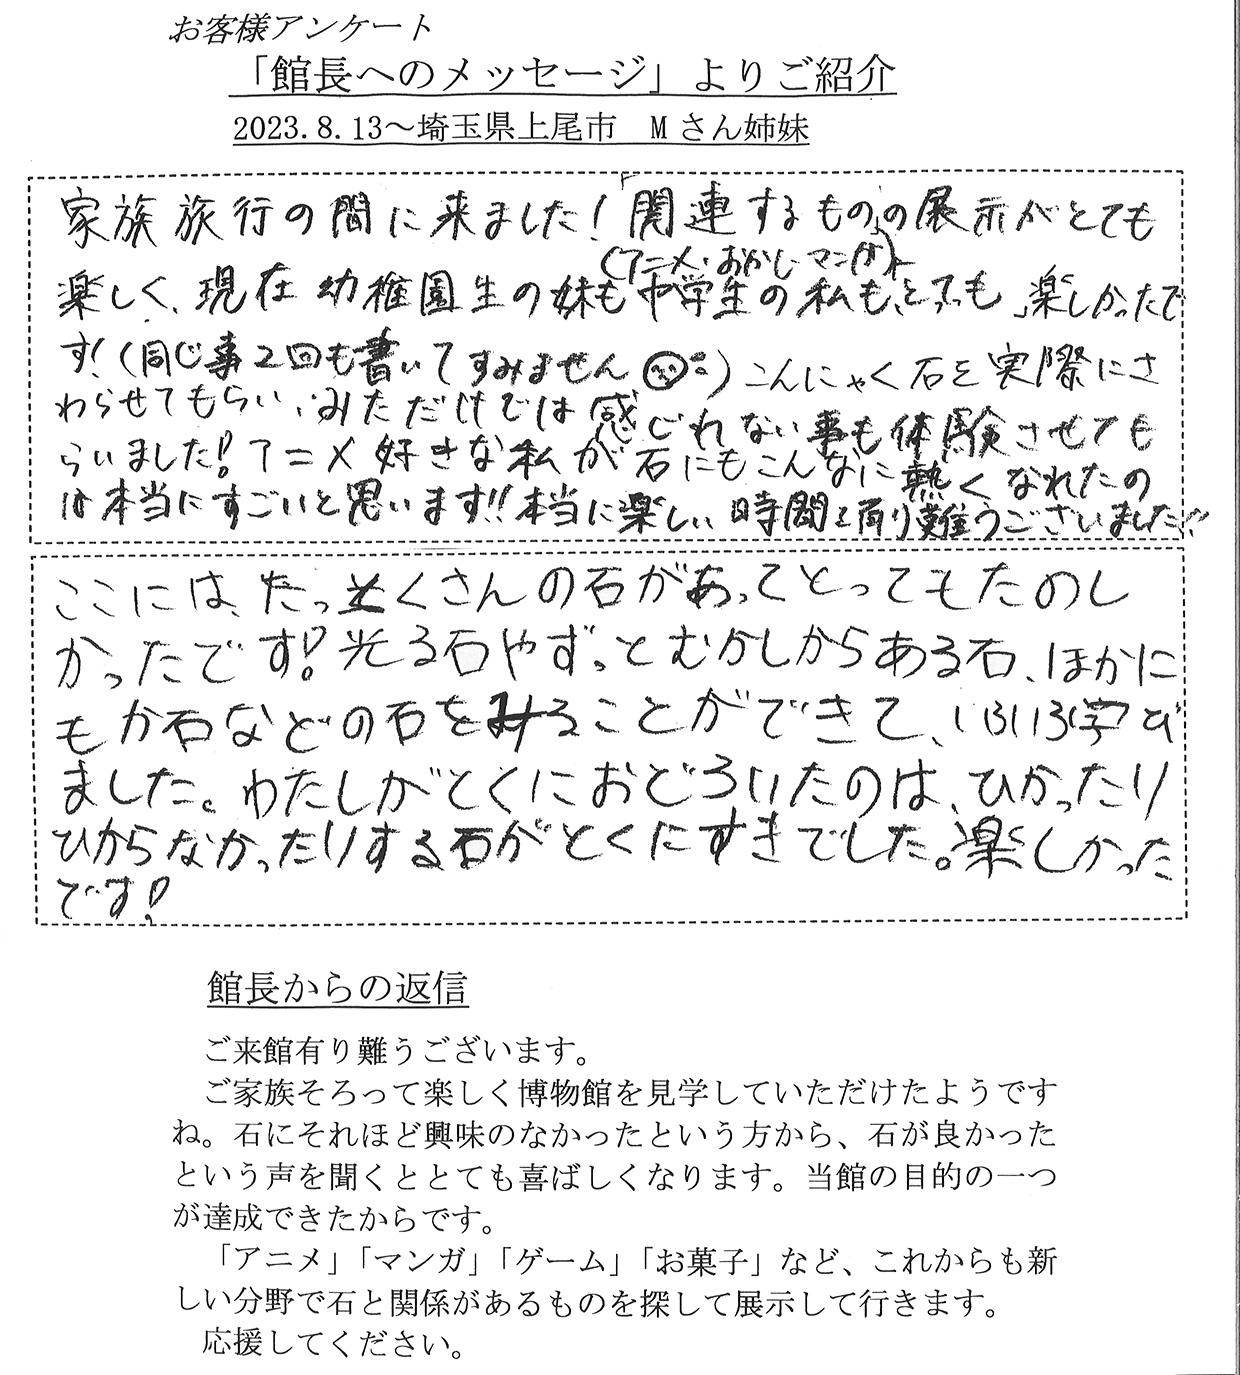 お客様アンケート
「館長へのメッセージ」よりご紹介
2023.8.13～埼玉県上尾市　Mさん姉妹
家族旅行の間に来ました！「関連するもの」の展示がとても
(アニメ・おかし・マンガ)
楽しく、現在幼稚園生の妹も中学生の私も、とっても楽しかったで
す！(同じ事2回も書いてすみません)こんにゃく石を実際にさ
わらせてもらい、みただけでは感じれない事も体験させても
らいました！アニメ好きな私が石にもこんなに熱くなれたの
は本当にすごいと思います!!本当に楽しい時間を有り難うございました!!
ここには、たっくさんの石があってとってもたのし
かったです！光る石やずっとむかしからある石、ほかに
もか石などの石をみることができて、いろいろ学び
ました。わたしがとくにおどろいたのは、ひかったり
ひからなかったりする石がとくにすきでした。楽しかった
です！
館長からの返信
ご来館有り難うございます。
ご家族そろって楽しく博物館を見学していただけたようです
ね。石にそれほど興味のなかったという方から、石が良かった
という声を聞くととても喜ばしくなります。当館の目的の一つ
が達成できたからです。
「アニメ」「マンガ」「ゲーム」「お菓子」など、これからも新
しい分野で石と関係があるものを探して展示して行きます。
応援してください。